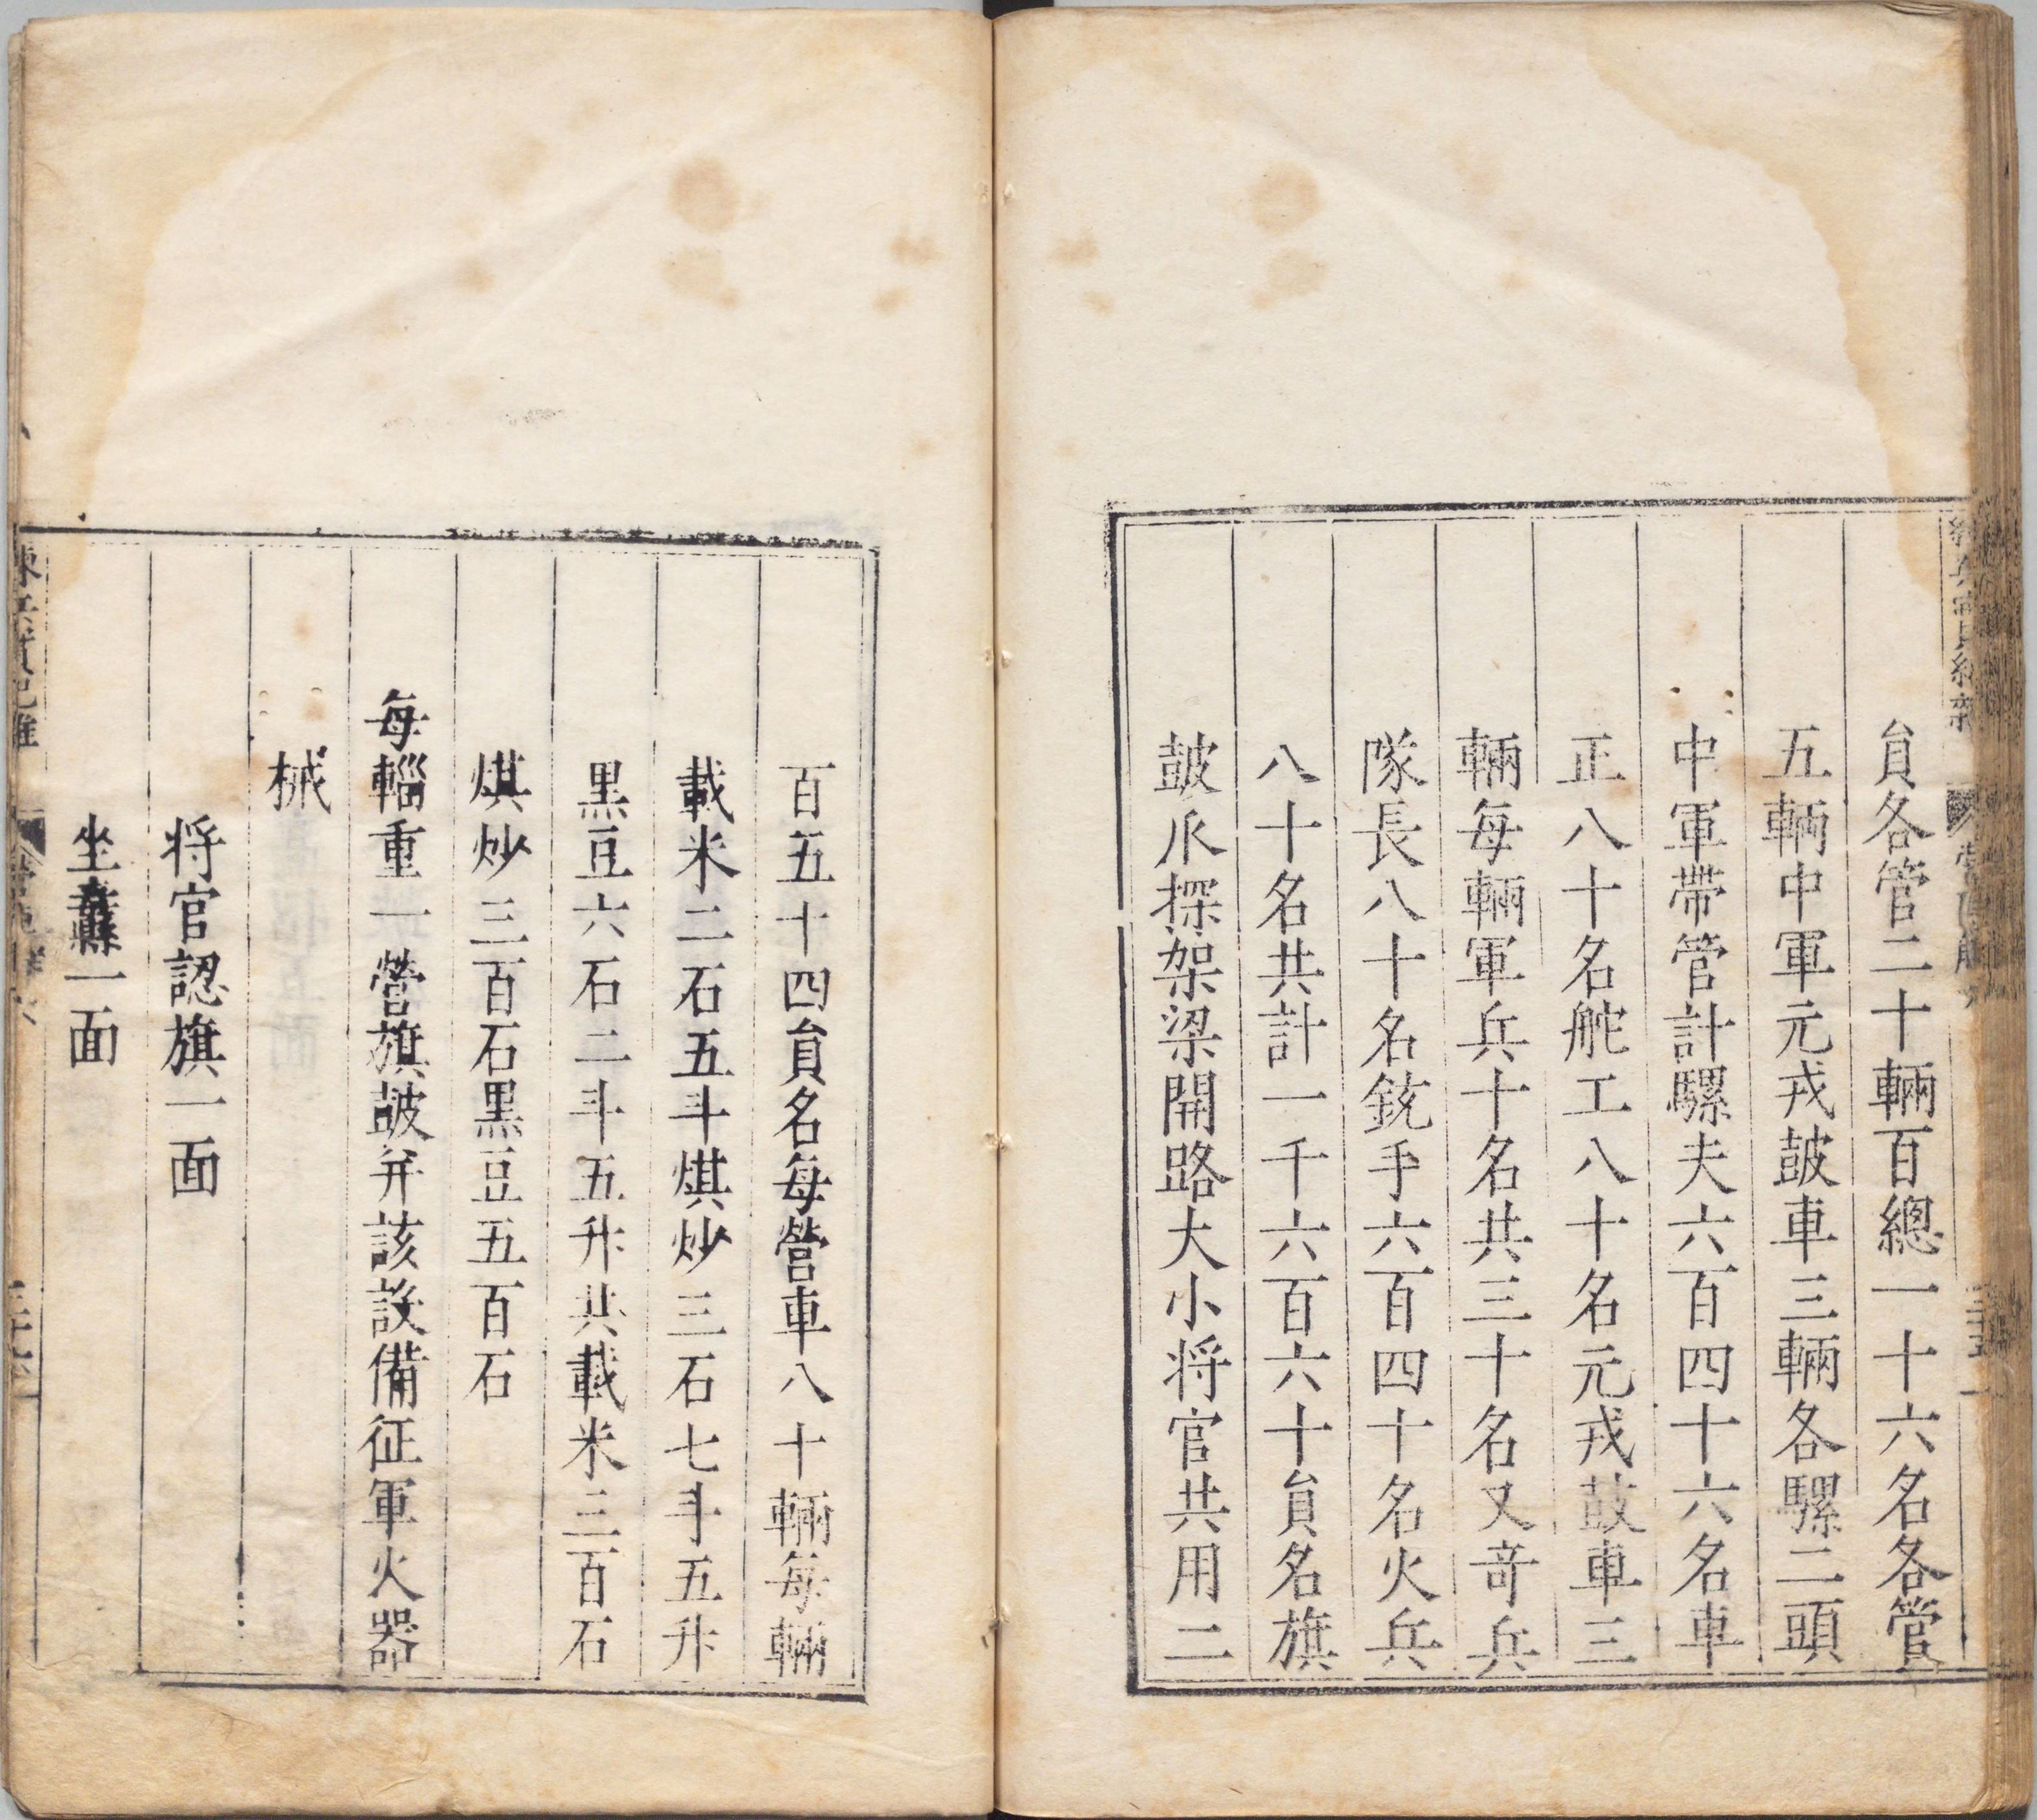 員各管二十輛百總一十六名各管
五輛中軍元戎皷車三輛各騾二頭
中軍帶管計騾夫六百四十六名車
正八十名舵工八十名元戎鼓車三
輛每輛軍兵十名共三十名又竒兵
隊長八十名銃手六百四十名火兵
八十名共計一千六百六十員名旗
皷爪探架梁開路大小将官共用二
百五十四員名每營車八十輛每輛
載米二石五斗煤炒三石七斗五升
黒豆六石二斗五升共載米二百石
煤炒三百石黒豆五百石
每輜重一營旗皷并該設備征軍火器
械
将官認旗一面
坐纛一面